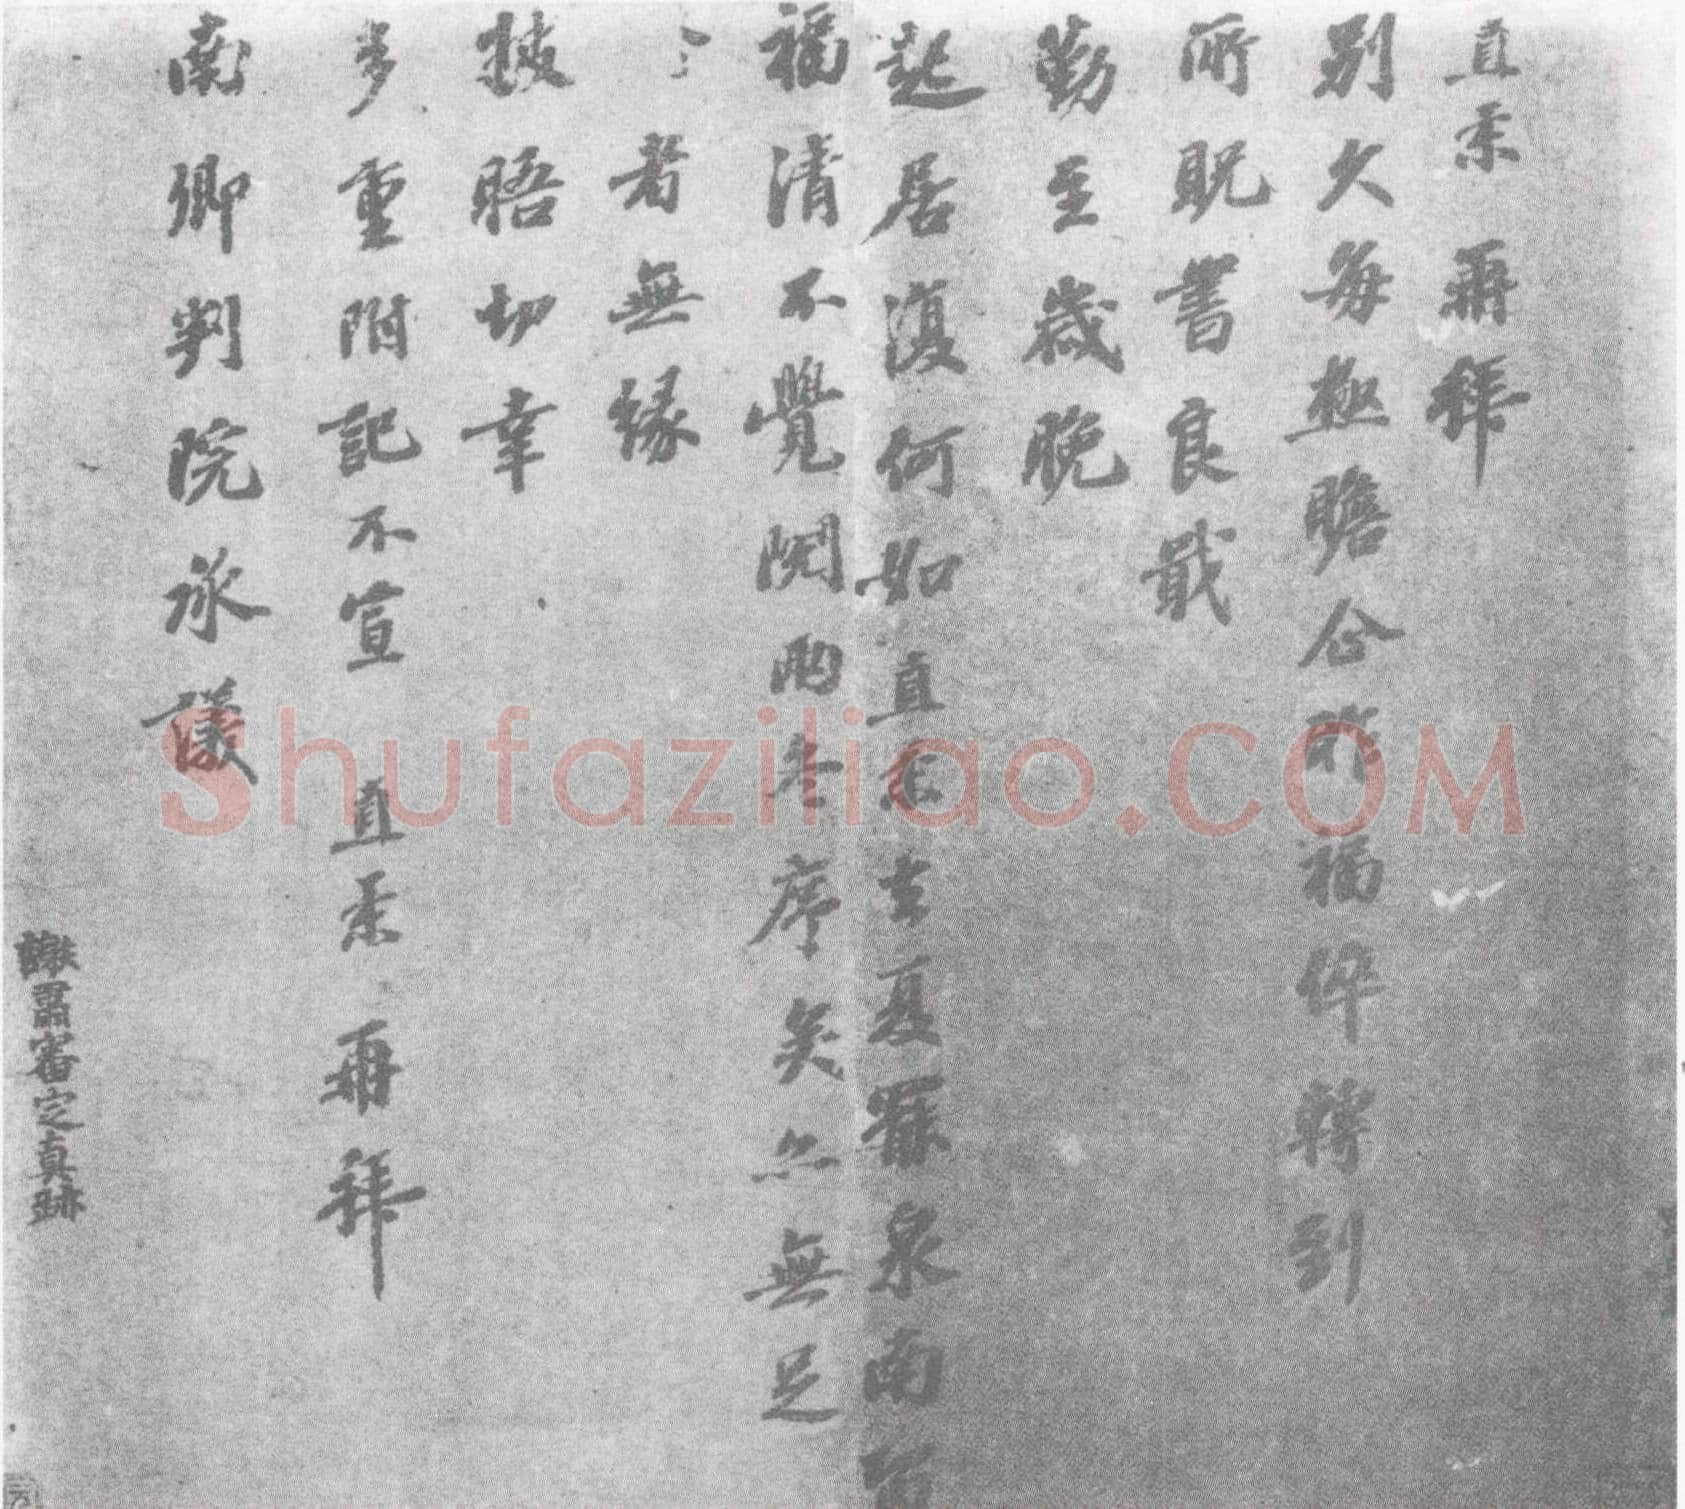 直柔 再拜
別久每極瞻企計福倅轉到
所貺書良戢
勤至歲晚
起居復何如直柔去夏罷泉南
福清不覺閱兩冬序矣無足
者無緣
披晤切幸
多重附記不宣 直柔 再拜
南卿判院承議
譙肅審定真跡
Shufaziliao.COM